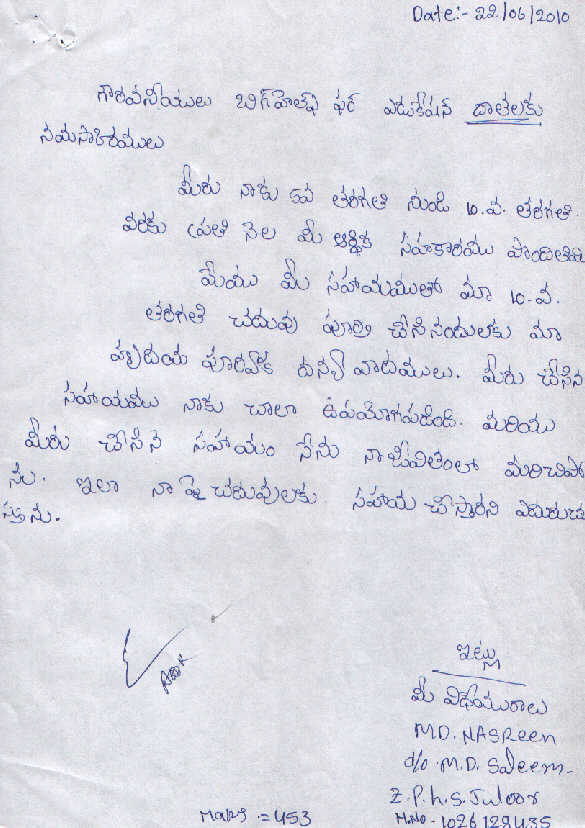 Date:- 22/06/2010
గౌరవనీయులు బిగ్‌హెల్ప్ ఫర్ ఎడుకేషన్ దాతలకు
నమసాకిరములు
మీరు నాకు 5వ తరగతి నుండి 10.వ. తరగతి
వరకు ప్రతి నెల మీ ఆర్థిక సహకారము పొందితిని
మేము మీ సహాయముతో మా 10-వ.
తరగతి చదువు పూర్తి చేసినందులకు మా
హృదయ పూర్వాక దన్య వాదములు. మీరు చేసిన
సహాయము నాకు చాలా ఉపయోగపడింది. మరియు
మీరు చేసిన సహాయం నేను నా జీవితంలో మరిచిపో
ను. ఇలా నా పై చదువులకు సహాయ చేస్తారని ఎదురుచూ
స్తాను.
ఇట్లు
మీ విధేయురాలు
MD. NASReen
d/o. M.D. Saleem-
Z.P.h.S. Juloor
Marks := 453 H.No - 1026129435